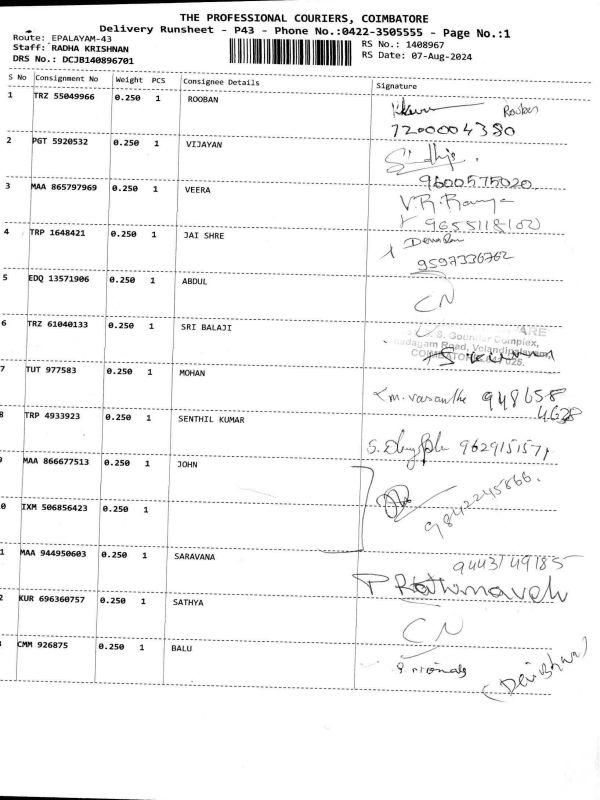 THE PROFESSIONAL COURIERS, COIMBATORE
Delivery Runsheet - P43 - Phone No.:0422-3505555 - Page No.:1
Route: EPALAYAM-43
Staff: RADHA KRISHNAN
DRS No.: DCJB140896701
RS No.: 1408967
RS Date: 07-Aug-2024
S No Consignment No Weight PCS Consignee Details Signature
1 TRZ 55049966 0.250 1 ROOBAN Rooban
7200004380
2 PGT 5920532 0.250 1 VIJAYAN
9600575020
3 MAA 865797969 0.250 1 VEERA V.R.Ramya
9655118102
4 TRP 1648421 0.250 1 JAI SHRE
9597336762
5 EDQ 13571906 0.250 1 ABDUL CN
6 TRZ 61040133 0.250 1 SRI BALAJI
S. Gounder Complex,
Road, Velandipalayam,
025.
7 TUT 977583 0.250 1 MOHAN m. vasantha 948658
4628
8 TRP 4933923 0.250 1 SENTHIL KUMAR 9629151571
MAA 866677513 0.250 1 JOHN
9842245866.
0 IXM 506856423 0.250 1
1 MAA 944950603 0.250 1 SARAVANA 9443149185
P Rathinavelu
2 KUR 696360757 0.250 1 SATHYA CN
CMM 926875 0.250 1 BALU